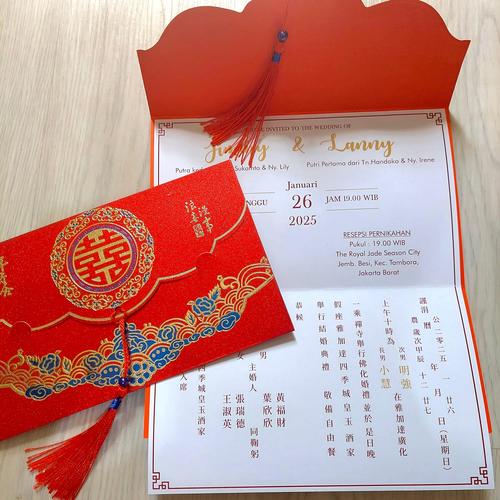 INVITED TO THE WEDDING OF
& Lanny
Putri Pertama dari Tn.Handoko & Ny. Irene
& Ny. Lily
Januari
26
2025
JAM 19.00 WIB
RESEPSI PERNIKAHAN
Pukul : 19.00 WIB
The Royal Jade Season City
Jemb. Besi, Kec. Tambora,
Jakarta Barat
謹詹
公曆二零二五年一月廿六日(星期日)
農歲次甲辰十二廿七
上午十時為次男明強在雅加達廣化
長男小慧
一乘禪寺舉行佛化婚禮並於是日晚
假座雅加達四季城皇玉酒家
舉行結婚典禮
敬備自由餐
恭候
黃福財
葉欣欣
主婚人
同鞠躬
張瑞德
王淑英
四季城皇玉酒家
入席
囍